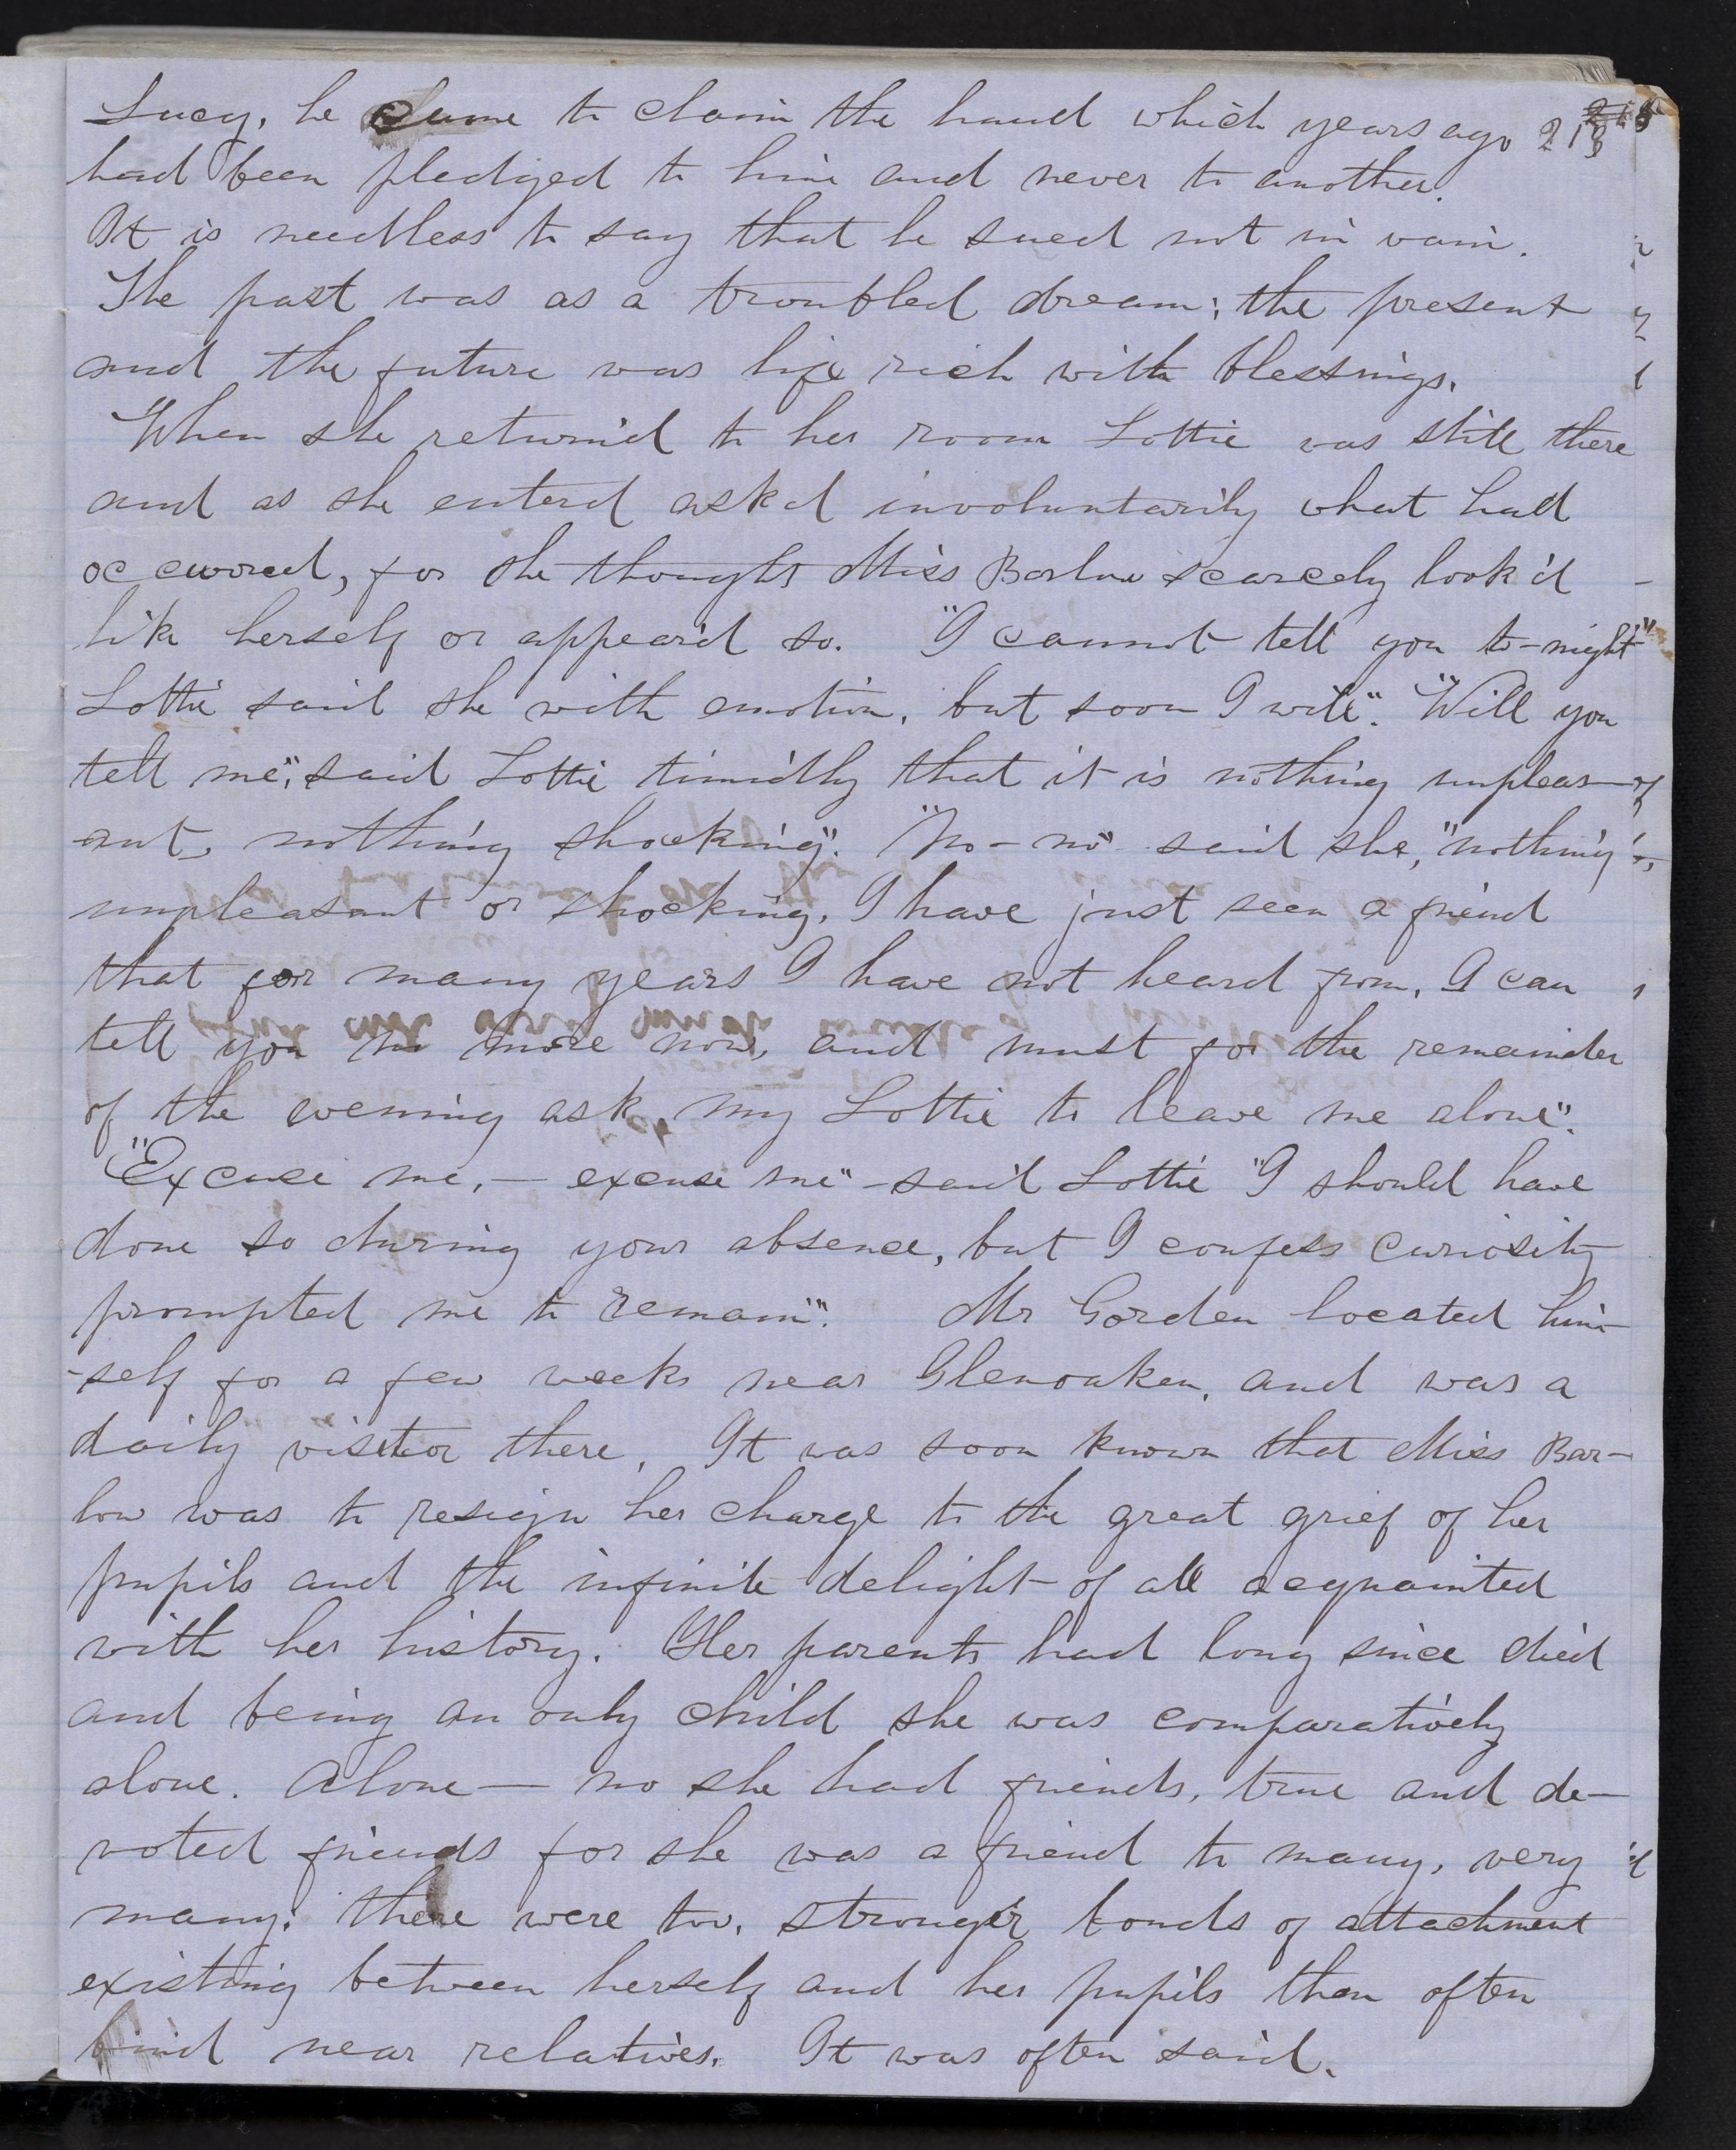 Lucy, he came to claim the hand which years ago 213
had been pledged to him and never to another.
It is needless to say that he sued not in vain.
The past was as a troubled dream; the present
and the future was life rich with blessings.
When she return'd to her room Lottie was still there
and as she enterd askd involuntarily what had
occurred, for she thought Miss Barlow scarcely look'd
like herself or appear'd so. "I cannot tell you to-night"
Lottie said she with emotion, but soon I will". "Will you
tell me", said Lottie timidly that it is nothing unpleas-
ant, nothing shocking". "No - no" said she, "nothing
unpleasant or shocking, I have just seen a friend
that for many years I have not heard from, I can
tell you no more now, and must for the remainder
of the evening ask my Lottie to leave me alone".
"Excuse me, - excuse me" - said Lottie "I should have
done so during your absence, but I confess curiosity
prompted me to remain". Mr Gorden located him-
-self for a few weeks near Glenoaken, and was a
daily visitor there. It was soon known that Miss Bar-
low was to resign her charge to the great grief of her
pupils and the infinite delight of all acquainted
with her history. Her parents had long since died
and being an only child she was comparatively
alone. Alone - no she had friends, true and de-
voted friends for she was a friend to many, very
many; there were too, stronger bonds of attachment
existing between herself and her pupils than often
bind near relatives. It was often said.